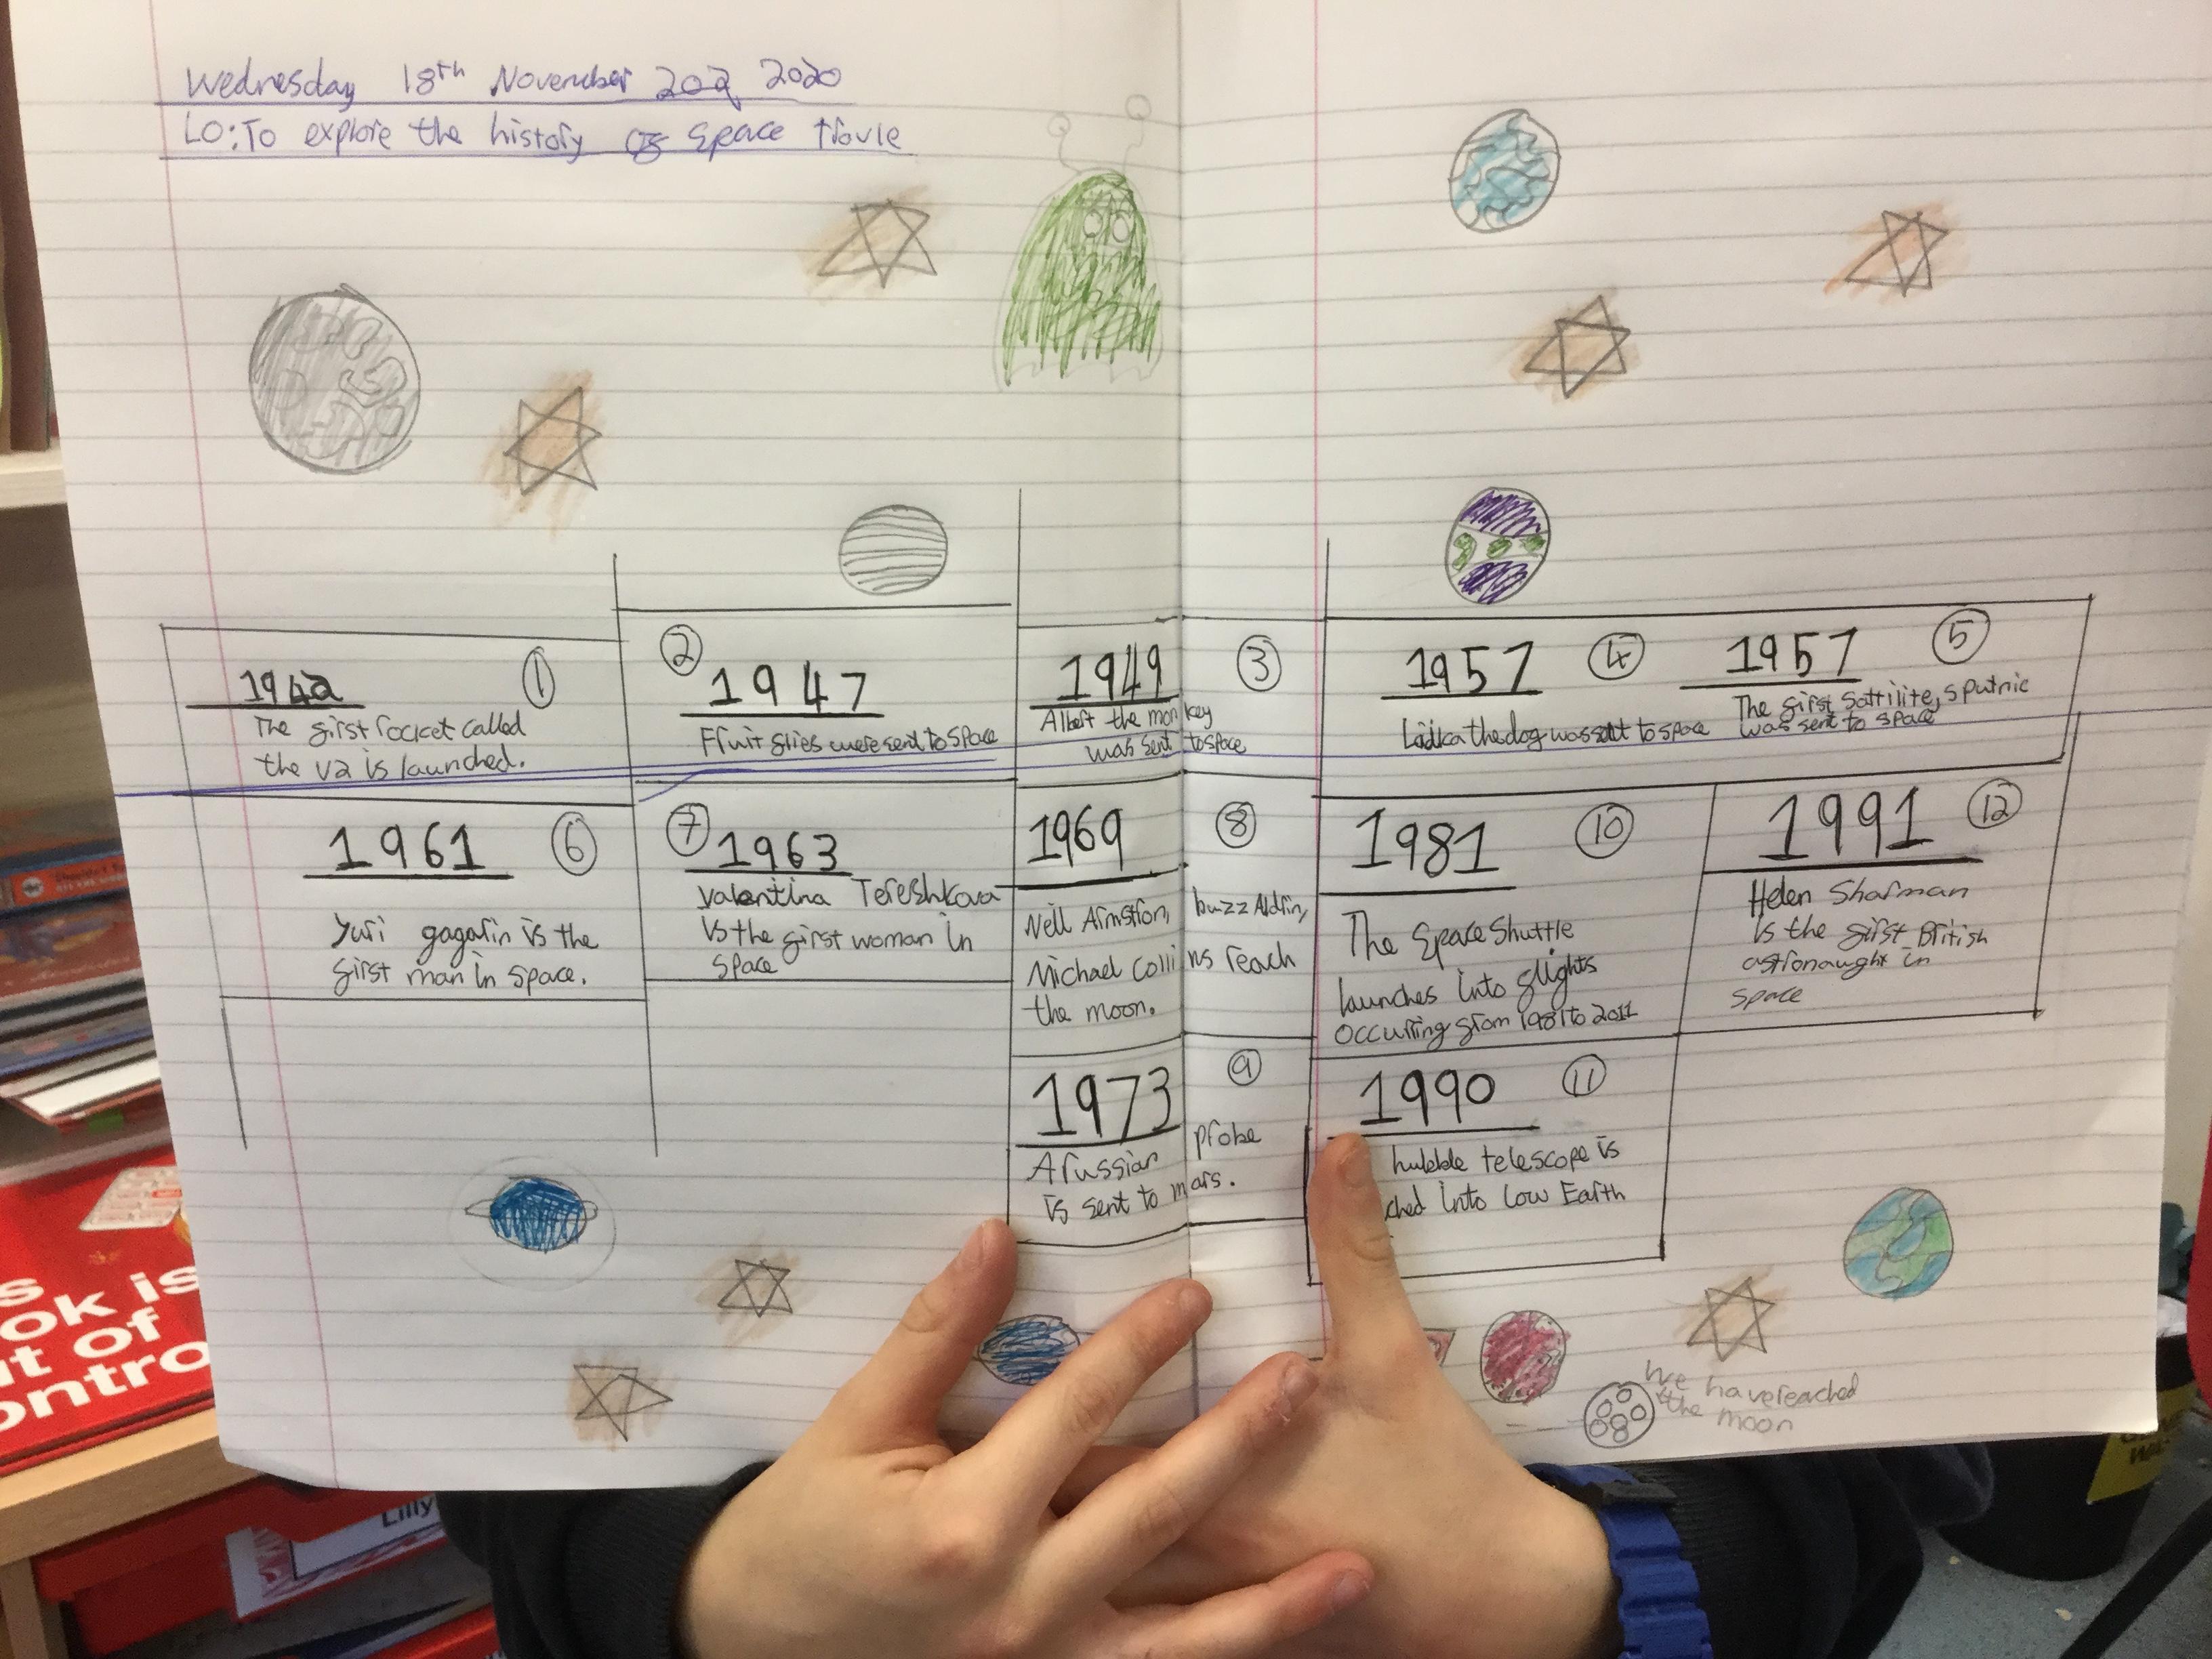 Wednesday 18th November 202 2020
LO: To explore the history of space travle
1942
1
The first rocket called
the V2 is launched.
2
1947
Fruit flies were sent to space
1949
3
Albert the monkey
was sent to space
1957
4
Laika the dog was sent to space
1957
5
The first sattilite, sputnic
was sent to space
1961
6
Yuri gagarin is the
first man in space.
7
1963
Valentina Tereshkova
is the first woman in
space
1969
8
Neil Armstron, buzz Aldrin,
Michael Collins reach
the moon.
1973
9
A russian probe
is sent to mars.
1981
10
The Space Shuttle
launches into flights
occurring from 1981 to 2011
1990
11
hubble telescope is
ched into low Earth
1991
12
Helen Sharman
is the first British
astronaught in
space
We have reached
the moon
s
ok is
t of
ontro
Lilly